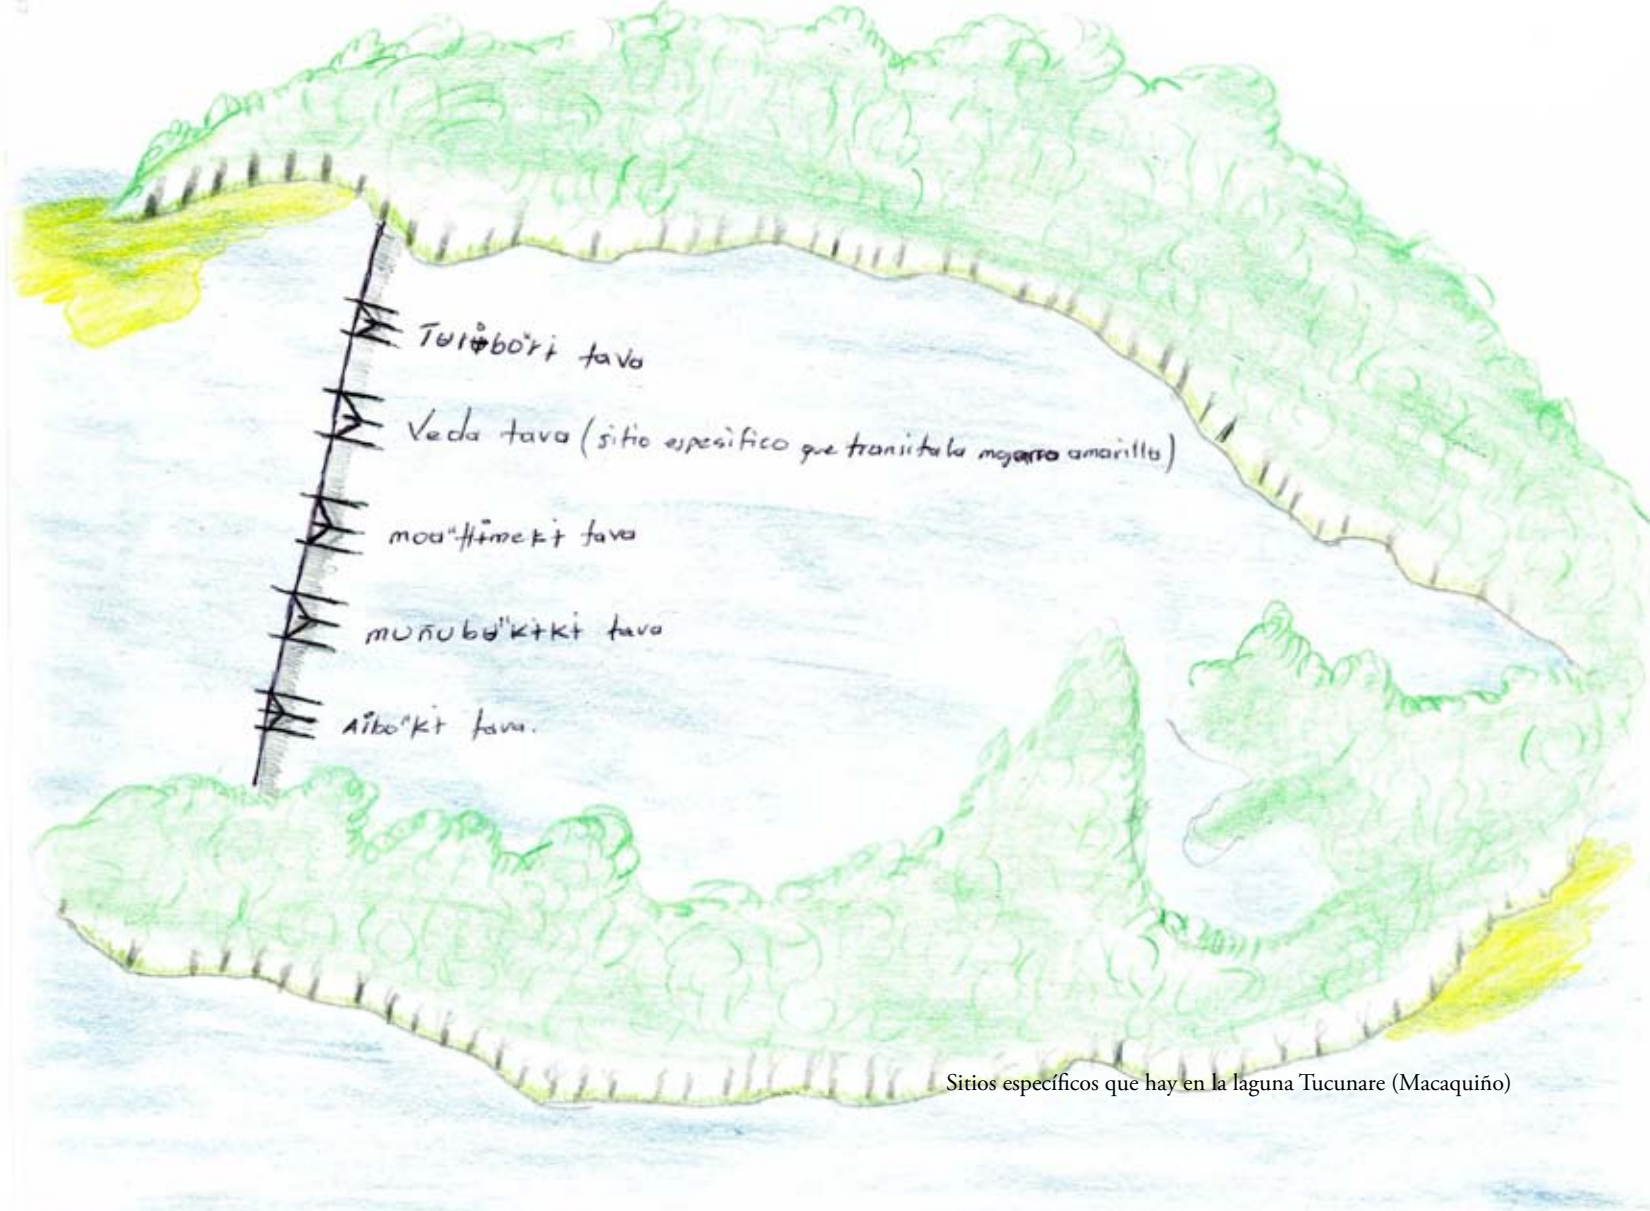 tava
Veda tava (sitio espesifico que transita la mojarra amarilla)
tava
muñubʉ"kɨkɨ tava
Aibo"kɨ tava.
Sitios específicos que hay en la laguna Tucunare (Macaquiño)